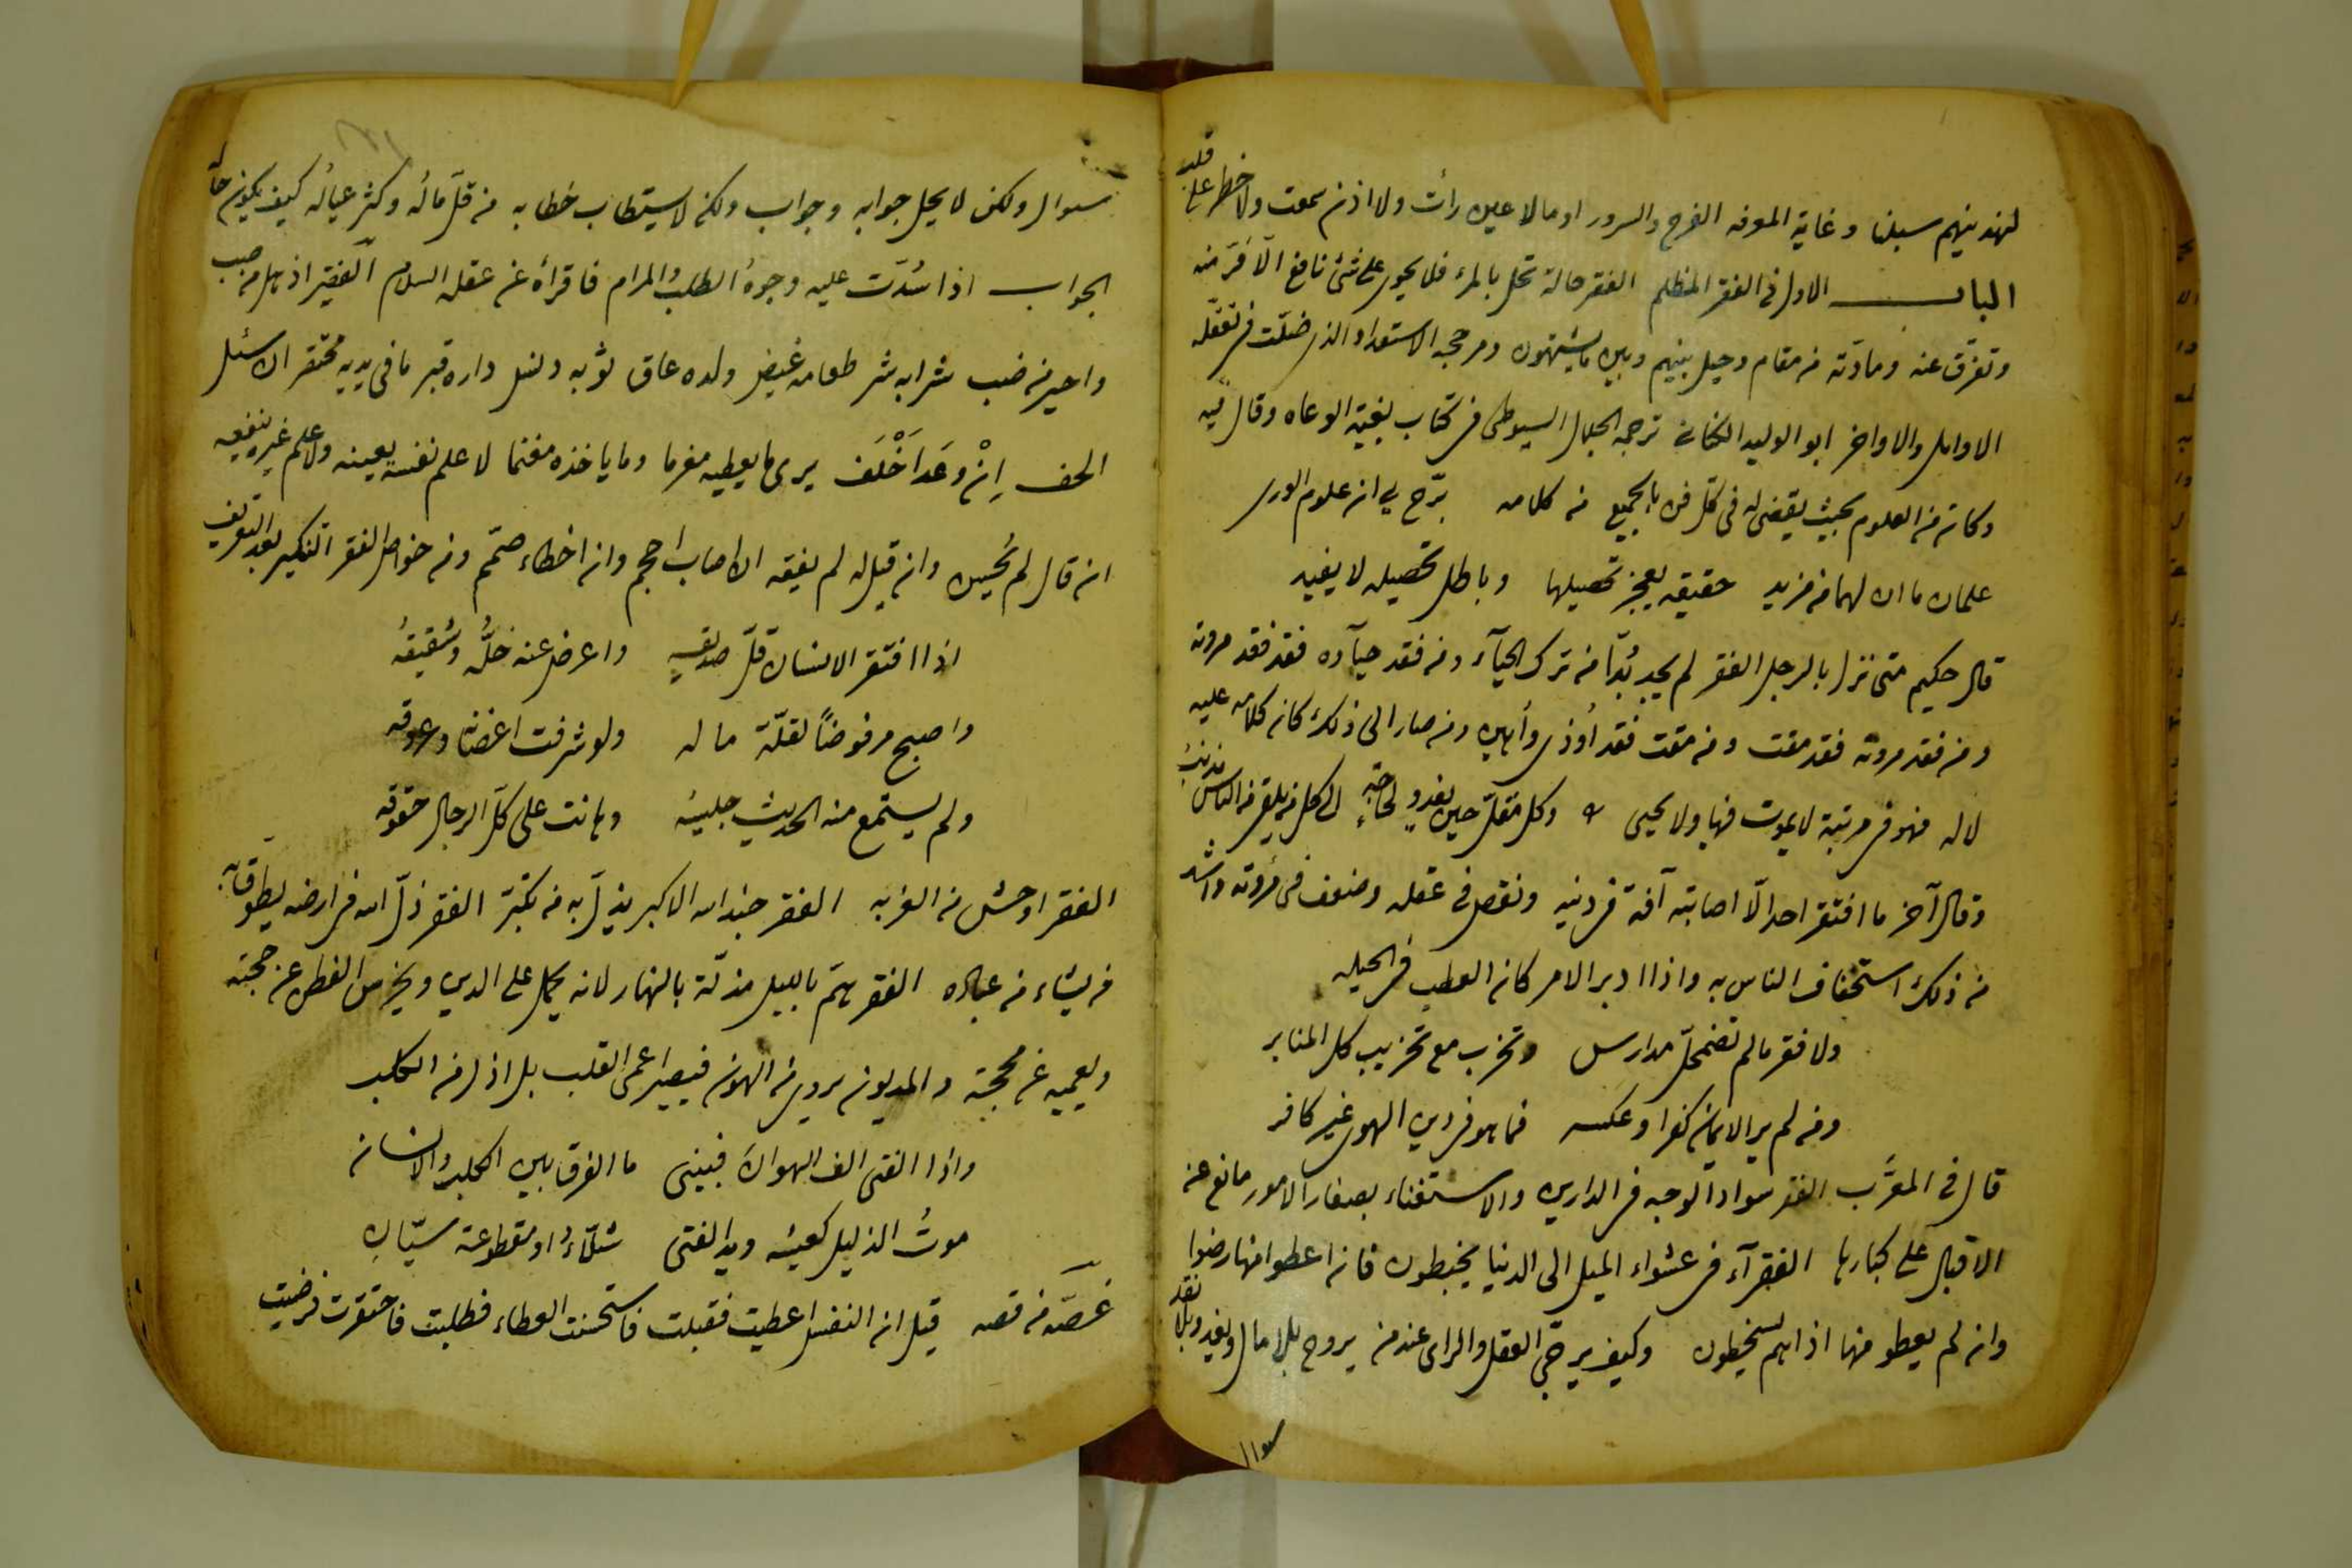 لنهدينهم سبلنا وغاية المعرفة الفرح والسرور او مالا عين رأت ولا اذن سمعت ولا خطر على قلب
الباب الاول فى الفقر المظلم الفقر حالة تحل بالمرء فلا يحوى على شئ نافع الا فرّ منه
وتفرّق عنه ومادّته من مقام وحيل بينهم وبين ما يشتهون ومرجحه الاستعداد الذى ضلّت فى تعقّله
الاوايل والاواخر ابو الوليد الكنانى ترجمه الجلال السيوطى فى كتاب بغية الوعاه وقال فيه
وكان من العلوم بحيث يقضى له فى كلّ فن بالجميع من كلامه برّح بى ان علوم الورى
علمان ما ان لهما من مزيد حقيقه يعجز تحصيلها وباطل تحصيله لا يفيد
قال حكيم متى نزل بالرجل الفقر لم يجد بُدّا من ترك الحيآء ومن فقد حيآءه فقد فقد مروته
ومن فقد مروته فقد مقت ومن مقت فقد اُوذى واُهين ومن صار الى ذلك كان كلامه عليه
لا له فهو فى مرتبة لا يموت فيها ولا يحيى وكل مُقلّ حين يغدو لحاجةٍ الى كل من يلقى من الناس مذنبُ
وقال آخر ما افتقر احد الّا اصابته آفة فى دينه ونقص فى عقله وضعف فى مُروّته واشد
من ذلك استخفاف الناس به واذا ادبر الامر كان العطب فى الحيله
ولا فقر مالم تضمحلّ مدارس وتخرب مع تخريب كل المنابر
ومن لم ير الايمان كفرا وعكسه فما هو فى دين الهوى غير كافر
قال فى المعرَّب الفقر سواد الوجه فى الدارين والاستغناء بصغار الامور مانع عن
الاقبال على كبارها الفقرآء فى عشواء الميل الى الدنيا يخبطون فان اعطوا منها رضوا
وان لم يعطو منها اذا هم يسخطون وكيف يرجّى العقل والراى عند من يروح بلا مال ويغدو بلا نقد
سوال
سوال ولكن لا يحل جوابه وجواب ولكن لا يستطاب خطابه من قلّ ماله وكثر عياله كيف يكون حاله
الجواب اذا سُدّت عليه وجوهُ الطلب والمرام فاقرأه عن عقله السلام الفقير اذهل من صب
واحير من ضب شرابه شر طعامه غيض ولده عاق ثوبه وليل داره قبر ما فى يديه محتقر ان سئل
الحف اِنْ وَعَدَ اَخْلَفَ يرى ما يعطيه مغرما وما ياخذه مغنما لا علم نفسه يعينه ولا علم غيره ينفعه
ان قال لم يُحسن وان قيل له لم يفقه ان اصاب احجم وان اخطاء صمّم ومن خواص الفقر التنكير بعد التعريف
اذا افتقر الانسان قلّ صديقه واعرض عنه خلُّه وشقيقُه
واصبح مرفوضًا لقلّة ماله ولو شرفت اغصانه وعروقه
ولم يستمع منه الحديث جليسُه وهانت على كلّ الرجال حقوقه
الفقر اوحش من الغربه الفقر جند الله الاكبر يذلّ به من تكبّر الفقر ذلّ الله فى ارضه يطوّق به
من يشاء من عباده الفقر همّ بالليل مذلّة بالنهار لانه يحمل على الدين ويخرس الفطن عن حجته
ويعميه عن محجته والمديون يروى من الهون فيصير اعمى القلب بل اذل من الكلب
واذا الفتى الف الهوان فبينى ما الفرق بين الكلب والانسان
موتُ الذليل كعيشه ويد الفتى شلّاءُ او مقطوعة سيّان
غصّه من قصه قيل ان النفس اعطيت فقبلت فاستحسنت العطاء فطلبت فاحتقرت فرضيت